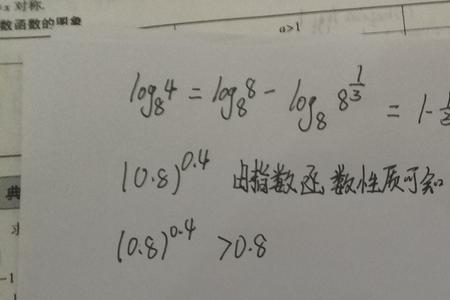 x 对称.
数函数的图象
a>1
log₈4 = log₈8 - log₈8^{1/3} = 1-
(0.8)^{0.4} 由指数函数性质可知
(0.8)^{0.4} >0.8
典
-1